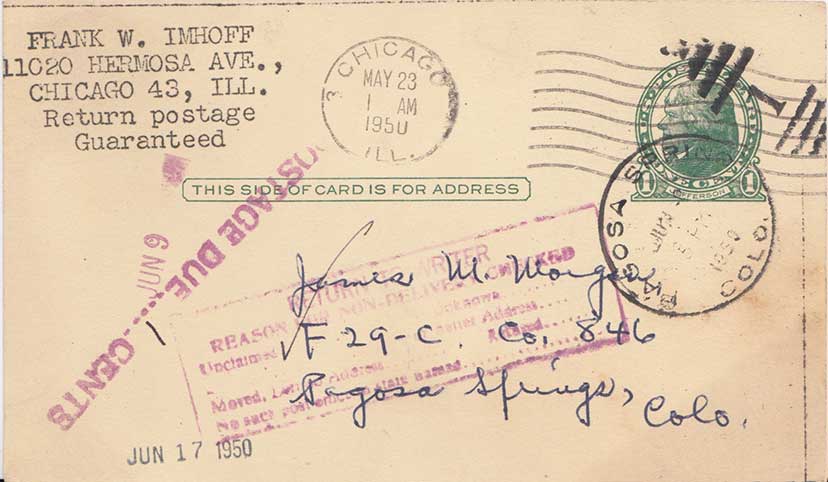 FRANK W. IMHOFF
11020 HERMOSA AVE.,
CHICAGO 43, ILL.
Return postage
Guaranteed
CHICAGO
3
MAY 23
1 AM
1950
ILL.
U.S. POSTAL CARD
1 ONE CENT 1
JEFFERSON
THIS SIDE OF CARD IS FOR ADDRESS
PAGOSA SPRINGS
JUN
1950
COLO.
POSTAGE DUE....CENTS
JUN 9
1
RETURN TO WRITER
REASON FOR NON-DELIVERY CHECKED
Unclaimed Unknown
Moved, Left no Address Refused
No such post office in state named
James M. Morgan
F 29-C. Co, 846
Pagosa Springs,
Colo.
JUN 17 1950